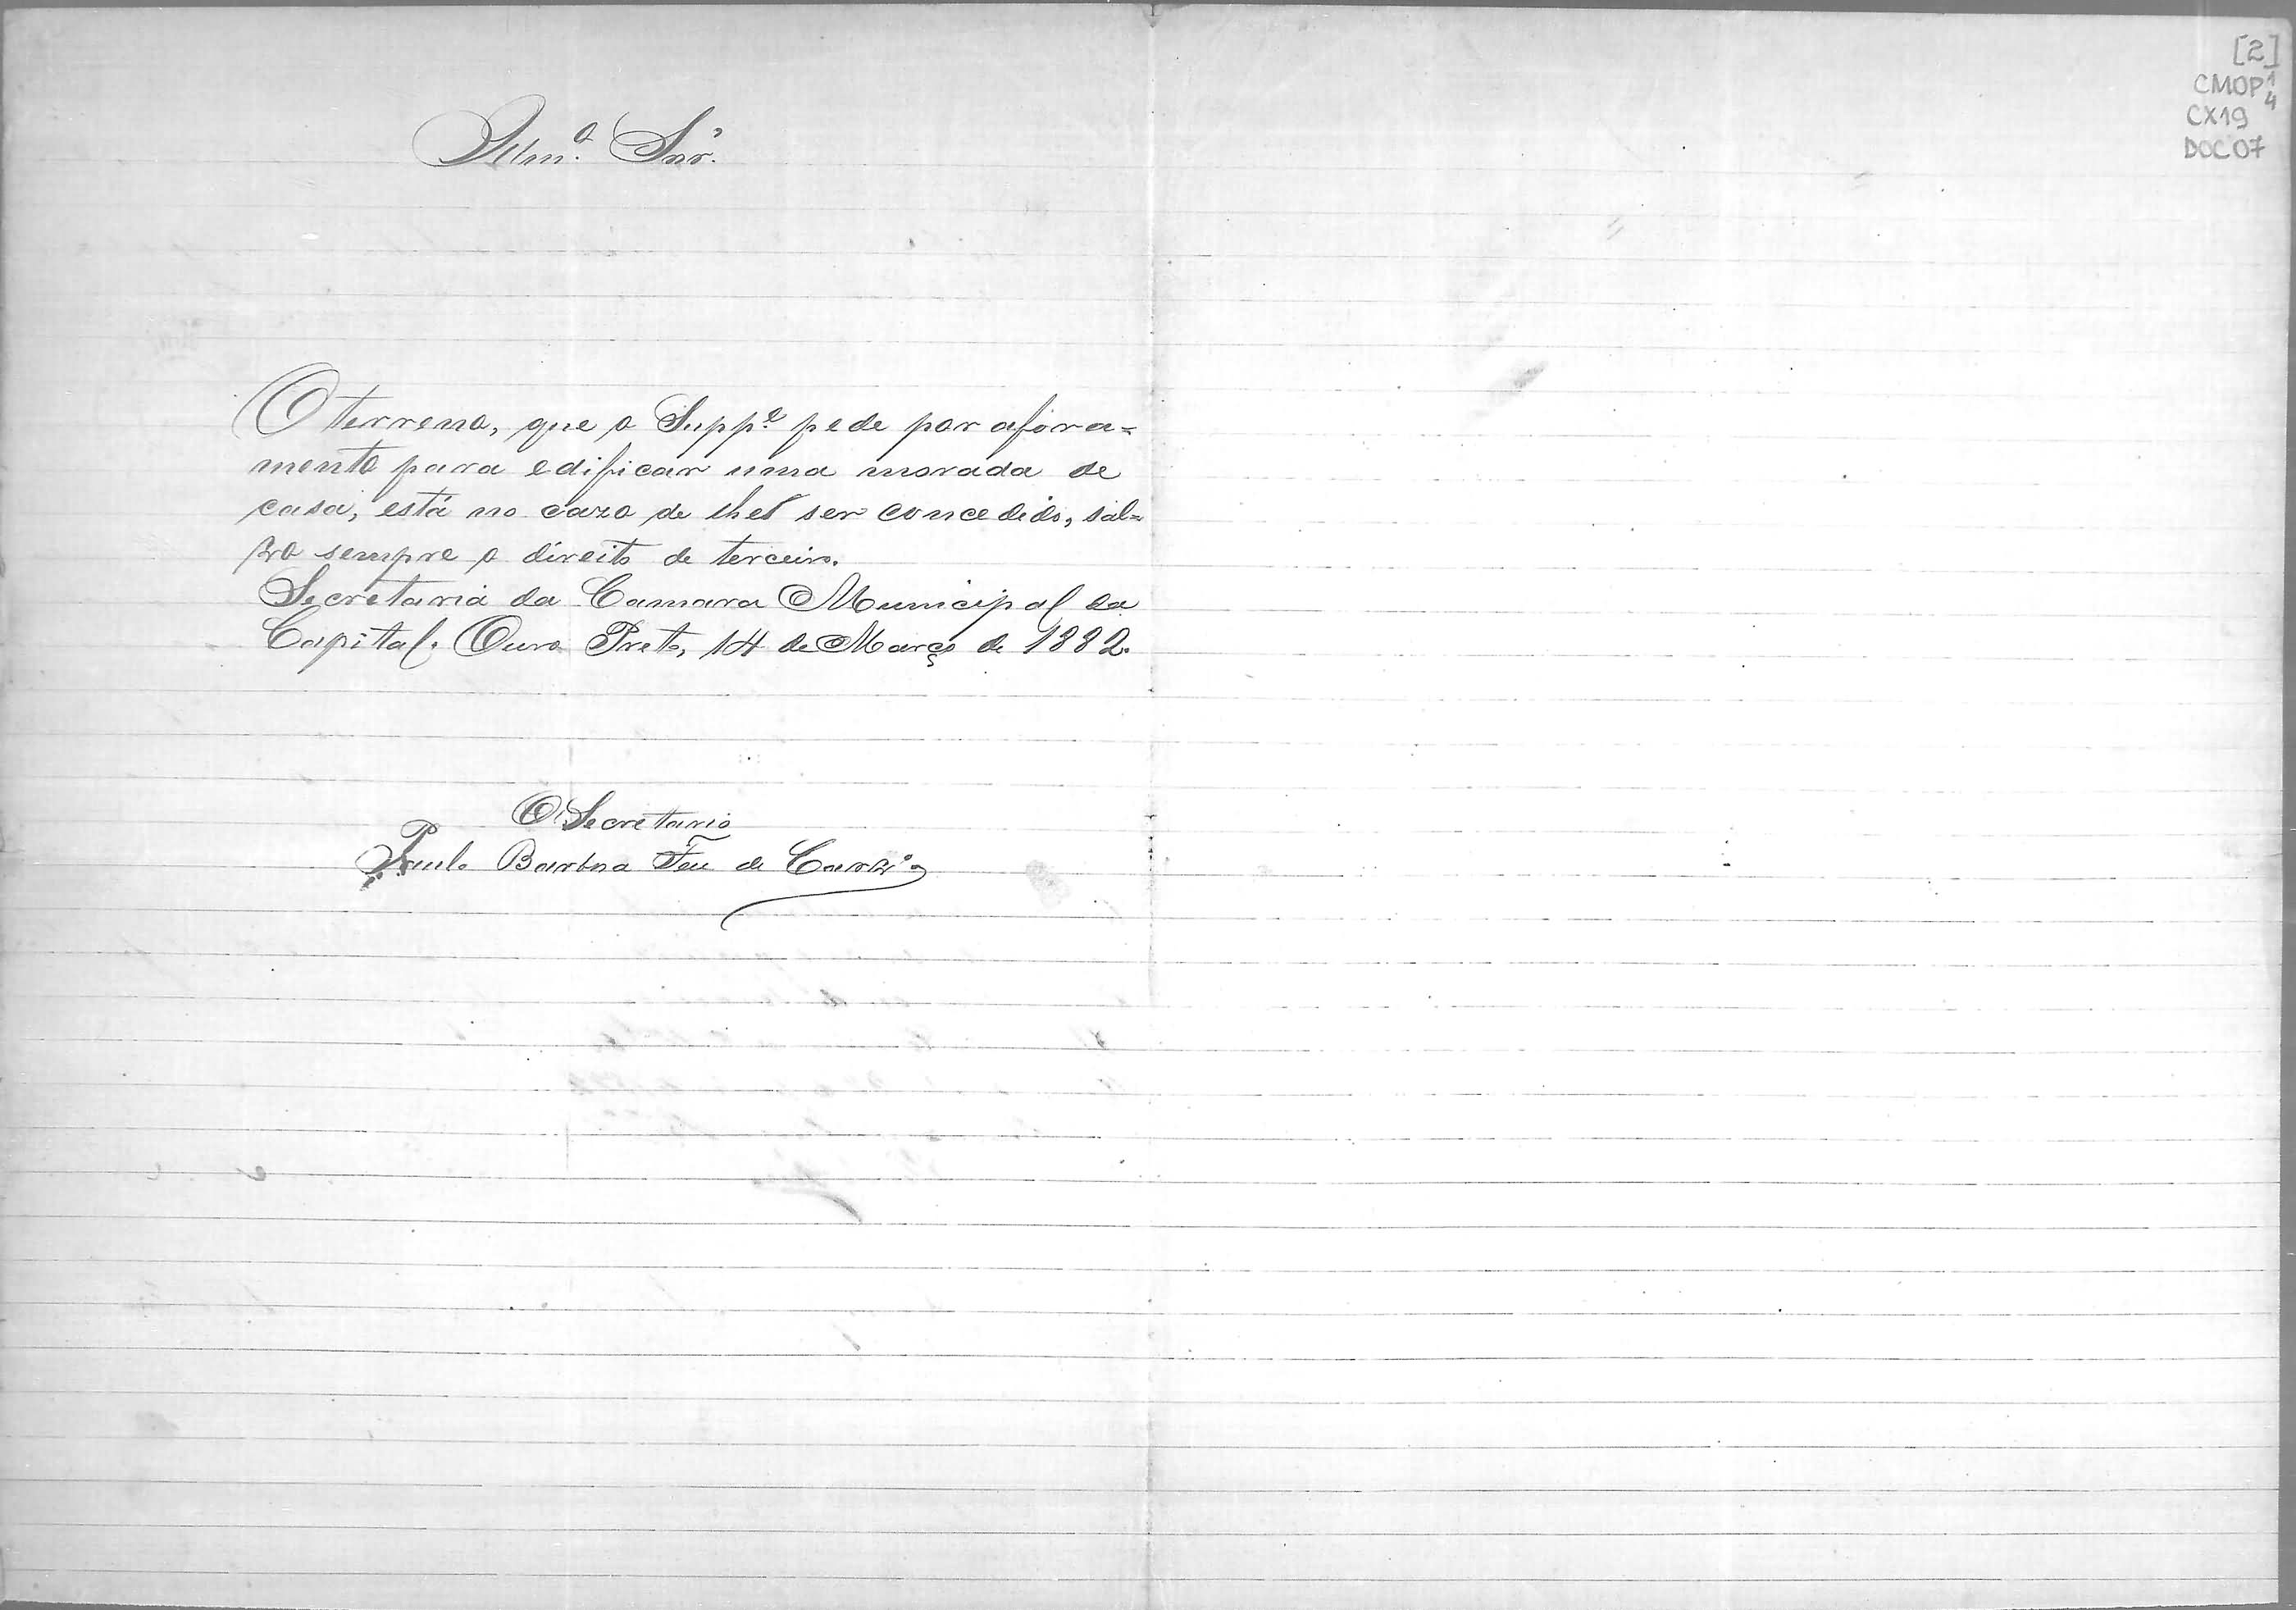 [2]
CMOP 1/4
CX19
DOC 07
Illmº. Snr.
O terreno, que o Suppe. pede por afora=
mento para edificar uma morada de
casa, está no cazo de lhe ser concedido, sal=
vo sempre o direito de terceiro.
Secretaria da Camara Municipal da
Capital. Ouro Preto, 14 de Março de 1882.
O Secretario
Paulo Barboza de Carvº.